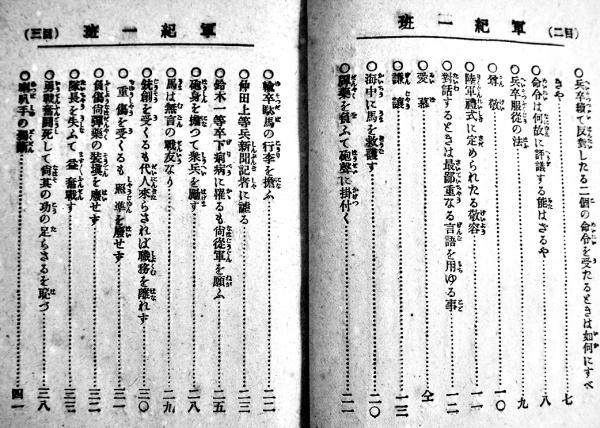 軍紀一班 (目二)
○兵卒嘗て反對したる二個の命令を受たるときは如何にすべきや……七
○命令は何故に評議する能はさるや……八
○兵卒服從の法……九
○尊敬……一〇
○陸軍禮式に定められたる敬容……一一
○對話するときは最鄭重なる言語を用ゆる事……一二
○愛慕……仝
○謙讓……一三
○海中に馬を救護す……二〇
○彈藥を負ふて砲聲に掛付く……二一
軍紀一班 (目三)
○輸卒駄馬の行李を擔ふ……二二
○仲田上等兵新聞記者に語る……二三
○鈴木一等卒下痢病に罹るも尙從軍を願ふ……二五
○砲身を擔つて衆兵を勵す……二八
○馬は無言の戰友なり……二九
○銃創を受くるも代人來らされば職務を離れす……三〇
○重傷を受くるも照準を廢せす……三一
○負傷尙彈藥の裝填を廢せす……三二
○隊長を失ふて益奮戰す……三三
○勇戰奮鬪死して尙其の功の足らさるを恥づ……三八
○喇叭手の……四一